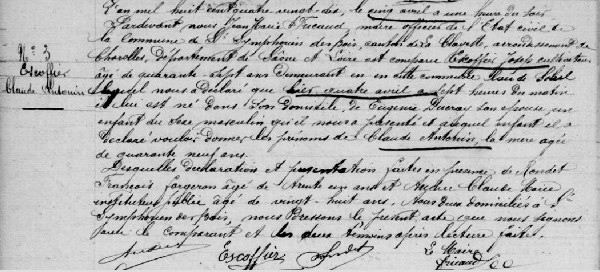 L'an mil huit cent quatre vingt dix, le cinq avril a une heure du soir
Pardevant, nous Jean Marie Fricaud, maire officier de l'Etat civil de
la commune de St Symphorien des bois, canton de La Clayette, arrondissement de
Charolles, Département de Saône et Loire est comparu Escoffier Joseph cultivateur
âgé de quarante sept ans demeurant en en cette commune
Lequel nous a déclaré que hier quatre avril a sept heures du matin
il lui est né dans son domicile, de Eugénie Ducray son épouse, un
enfant du sexe masculin qu'il nous a présenté et auquel enfant il a
déclaré vouloir donner les prénoms de Claude Antonin, la mère agée
de quarante neuf ans.
Desquelles déclaration et présentation faites en présence de
François forgeron âgé de trente un ans et Claude Marie
instituteur public âgé de vingt-huit ans. Tous deux domiciliés à St
Symphorien des bois, nous dressons le présent acte que nous signons
avec le comparant et les deux témoins après lecture faite.
Escoffier
Le Maire
Fricaud
No 3
Escoffier
Claude Antonin